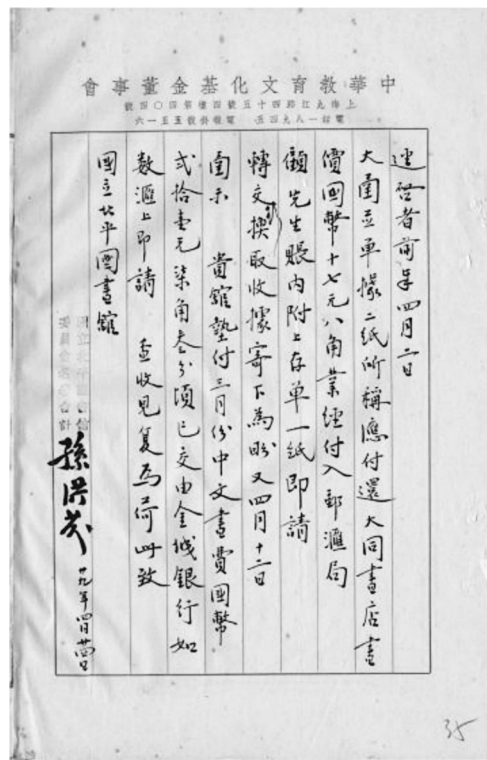 中華教育文化基金董事會
上海九江路四十五號四樓第四〇四號
電話一八九四五　電報掛號五五一六
逕啓者前奉四月二日
大函並單據二紙所稱應付還大同書店書
價國幣十七元八角業經付入郵滙局
顧先生賬内附上存單一紙即請
轉交換取收據寄下為盼又四月十二日
函示　貴館墊付三月份中文書費國幣
弍拾壹元柒角叁分頃已交由金城銀行如
數滙上即請　查收見复為荷此致
國立北平圖書館
孫洪芬
廿九年四月廿四日
35